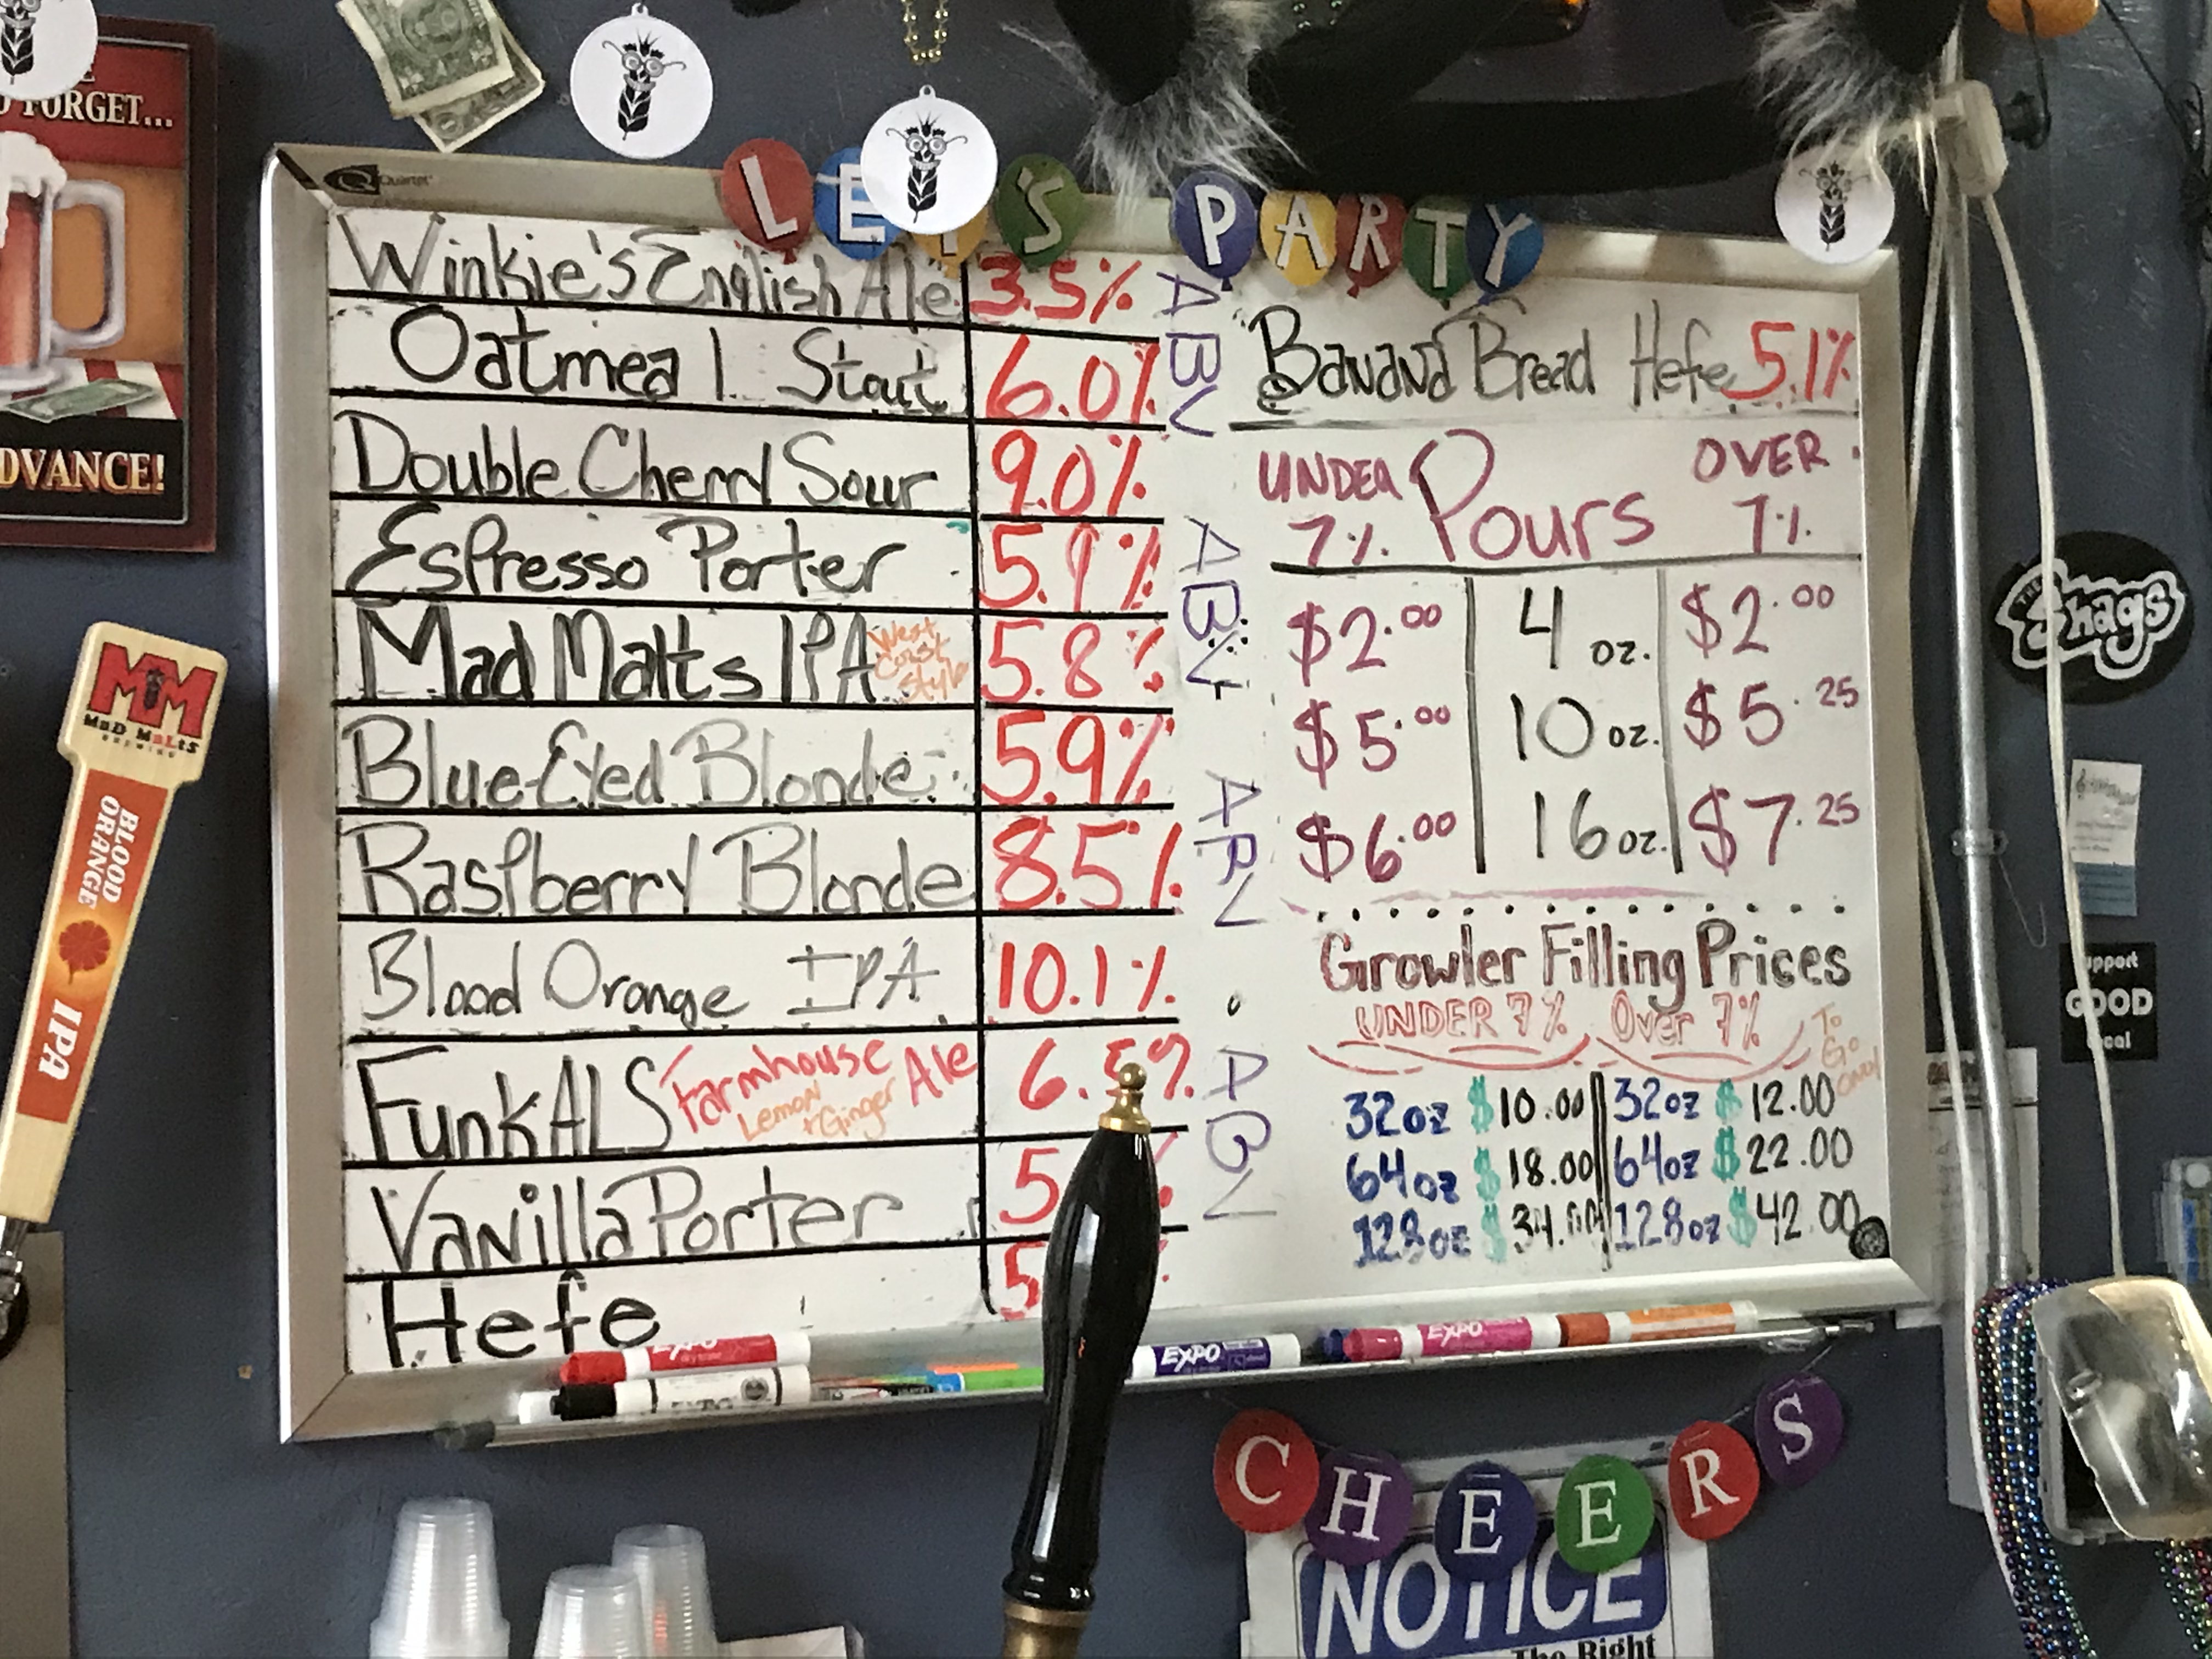 FORGET...
ADVANCE!
Quartet
LET'S PARTY
Winkie's English Ale 3.5%
Oatmeal Stout 6.0%
Double Cherry Sour 9.0%
Espresso Porter 5.9%
Mad Malts IPA West Coast Style 5.8%
Blue-Eyed Blonde 5.9%
Raspberry Blonde 8.5%
Blood Orange IPA 10.1%
FunkALS Farmhouse Ale 6.
Lemon + Ginger
Vanilla Porter 5
Hefe 5
ABV
ABV
ABV
ABV
Banana Bread Hefe 5.1%
UNDER 7% Pours OVER 7%
$2.00 4 oz. $2.00
$5.00 10 oz. $5.25
$6.00 16 oz. $7.25
Growler Filling Prices
UNDER 7% Over 7% To Go Only
32oz $10.00 32oz $12.00
64oz $18.00 64oz $22.00
128oz $34.00 128oz $42.00
MM
MaD MaLtS
BREWING
BLOOD ORANGE
IPA
THE Shags
GOOD
EXPO
EXPO
EXPO
EXPO
CHEERS
NOTICE
The Right